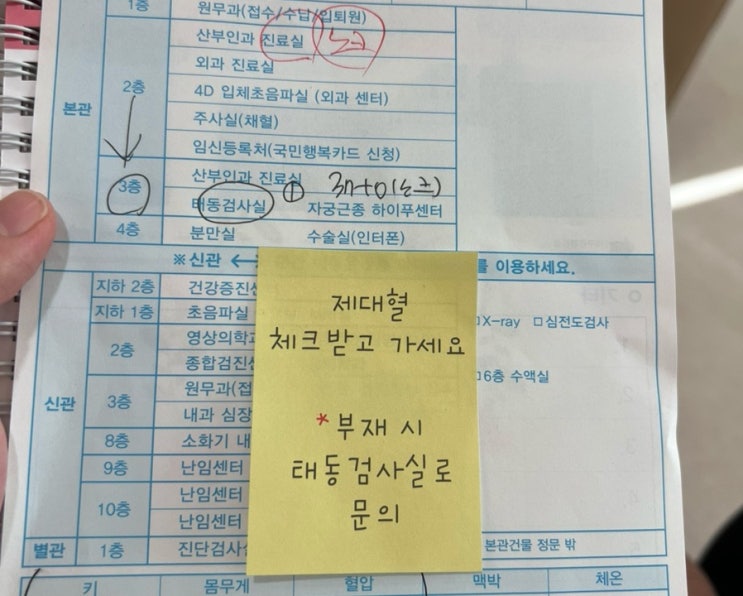 1층 원무과(접수/수납/입퇴원)
본관
2층
산부인과 진료실 노크
외과 진료실
4D 입체초음파실 (외과 센터)
주사실(채혈)
임신등록처(국민행복카드 신청)
3층
산부인과 진료실
태동검사실 ① 자궁근종 하이푸센터
4층 분만실 수술실(인터폰)
※신관 ↔ 를 이용하세요.
신관
지하 2층 건강증진센
지하 1층 초음파실 X-ray □심전도검사
2층
영상의학과
종합검진센
6층 수액실
3층
원무과(접
내과 심장
8층 소화기 내
9층 난임센터
10층
난임센터
난임센터
별관 1층 진단검사 본관건물 정문 밖
키 몸무게 혈압 맥박 체온
제대혈
체크받고 가세요
*부재 시
태동검사실로
문의